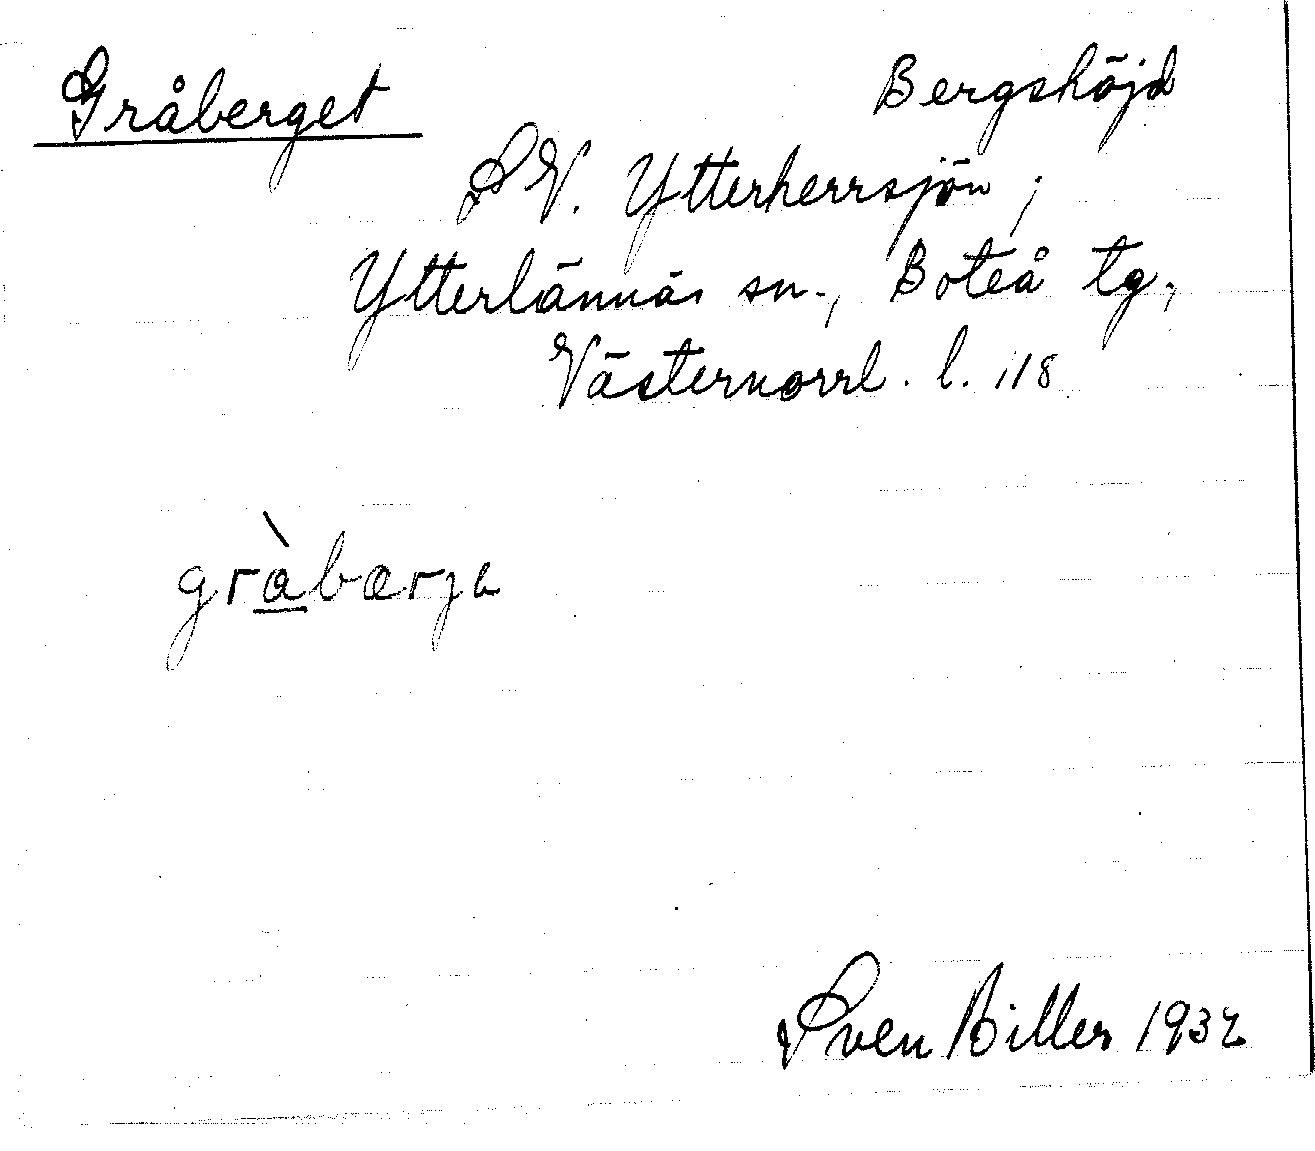 Gråberget Bergshöjd
SV. Ytterherrsjön;
Ytterlännäs sn., Boteå tg.,
Västernorrl. l. 118
gràbærja
Sven Biller 1932